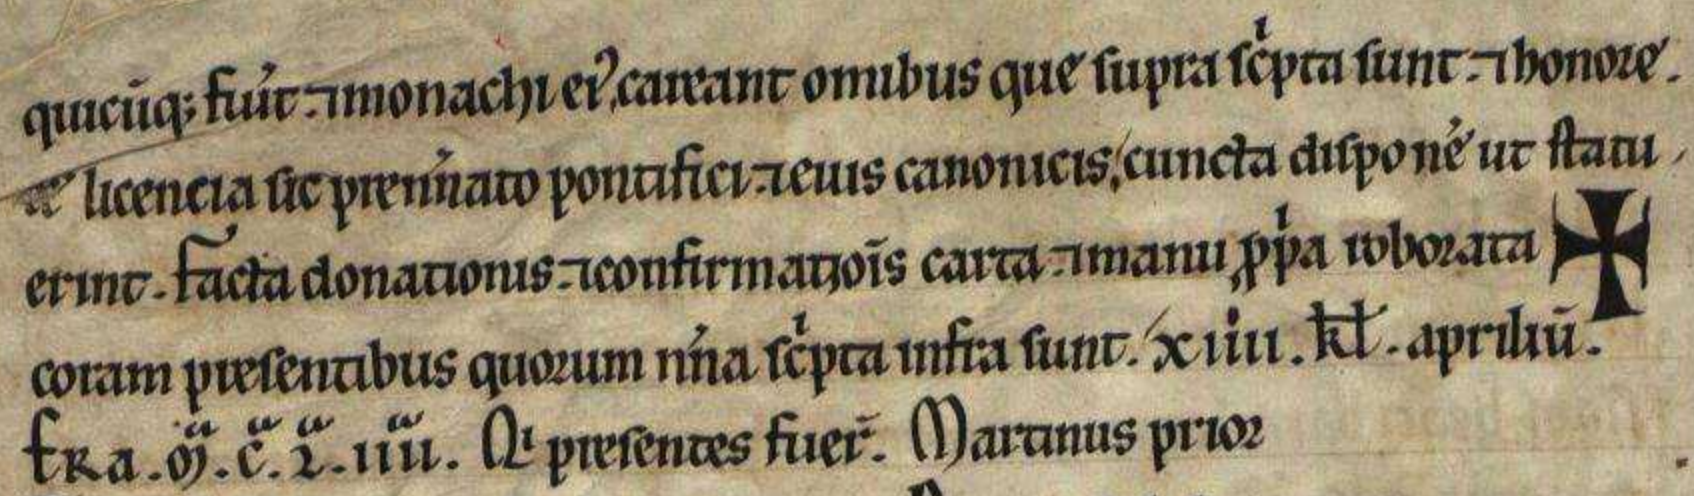 quicūq; fiu̾t ⁊ monachi ei᾿, careant omībus que supra sc̍pta sunt. ⁊ honore.
⁊ licencia sic prenn̾ato pontifici ⁊ euis canonicis, cuncta disponē ut statu
erint. facta donationis ⁊ confirmatiōis carta ⁊ manu ꝓp̍a roborata
coram presentibus quorum nn̾a sc̍pta infra sunt. xiiii. kł. apriliū.
ERA. M̃. C̃. L̃. iiii. Qͥ presentes fuer̄. Martinus prior